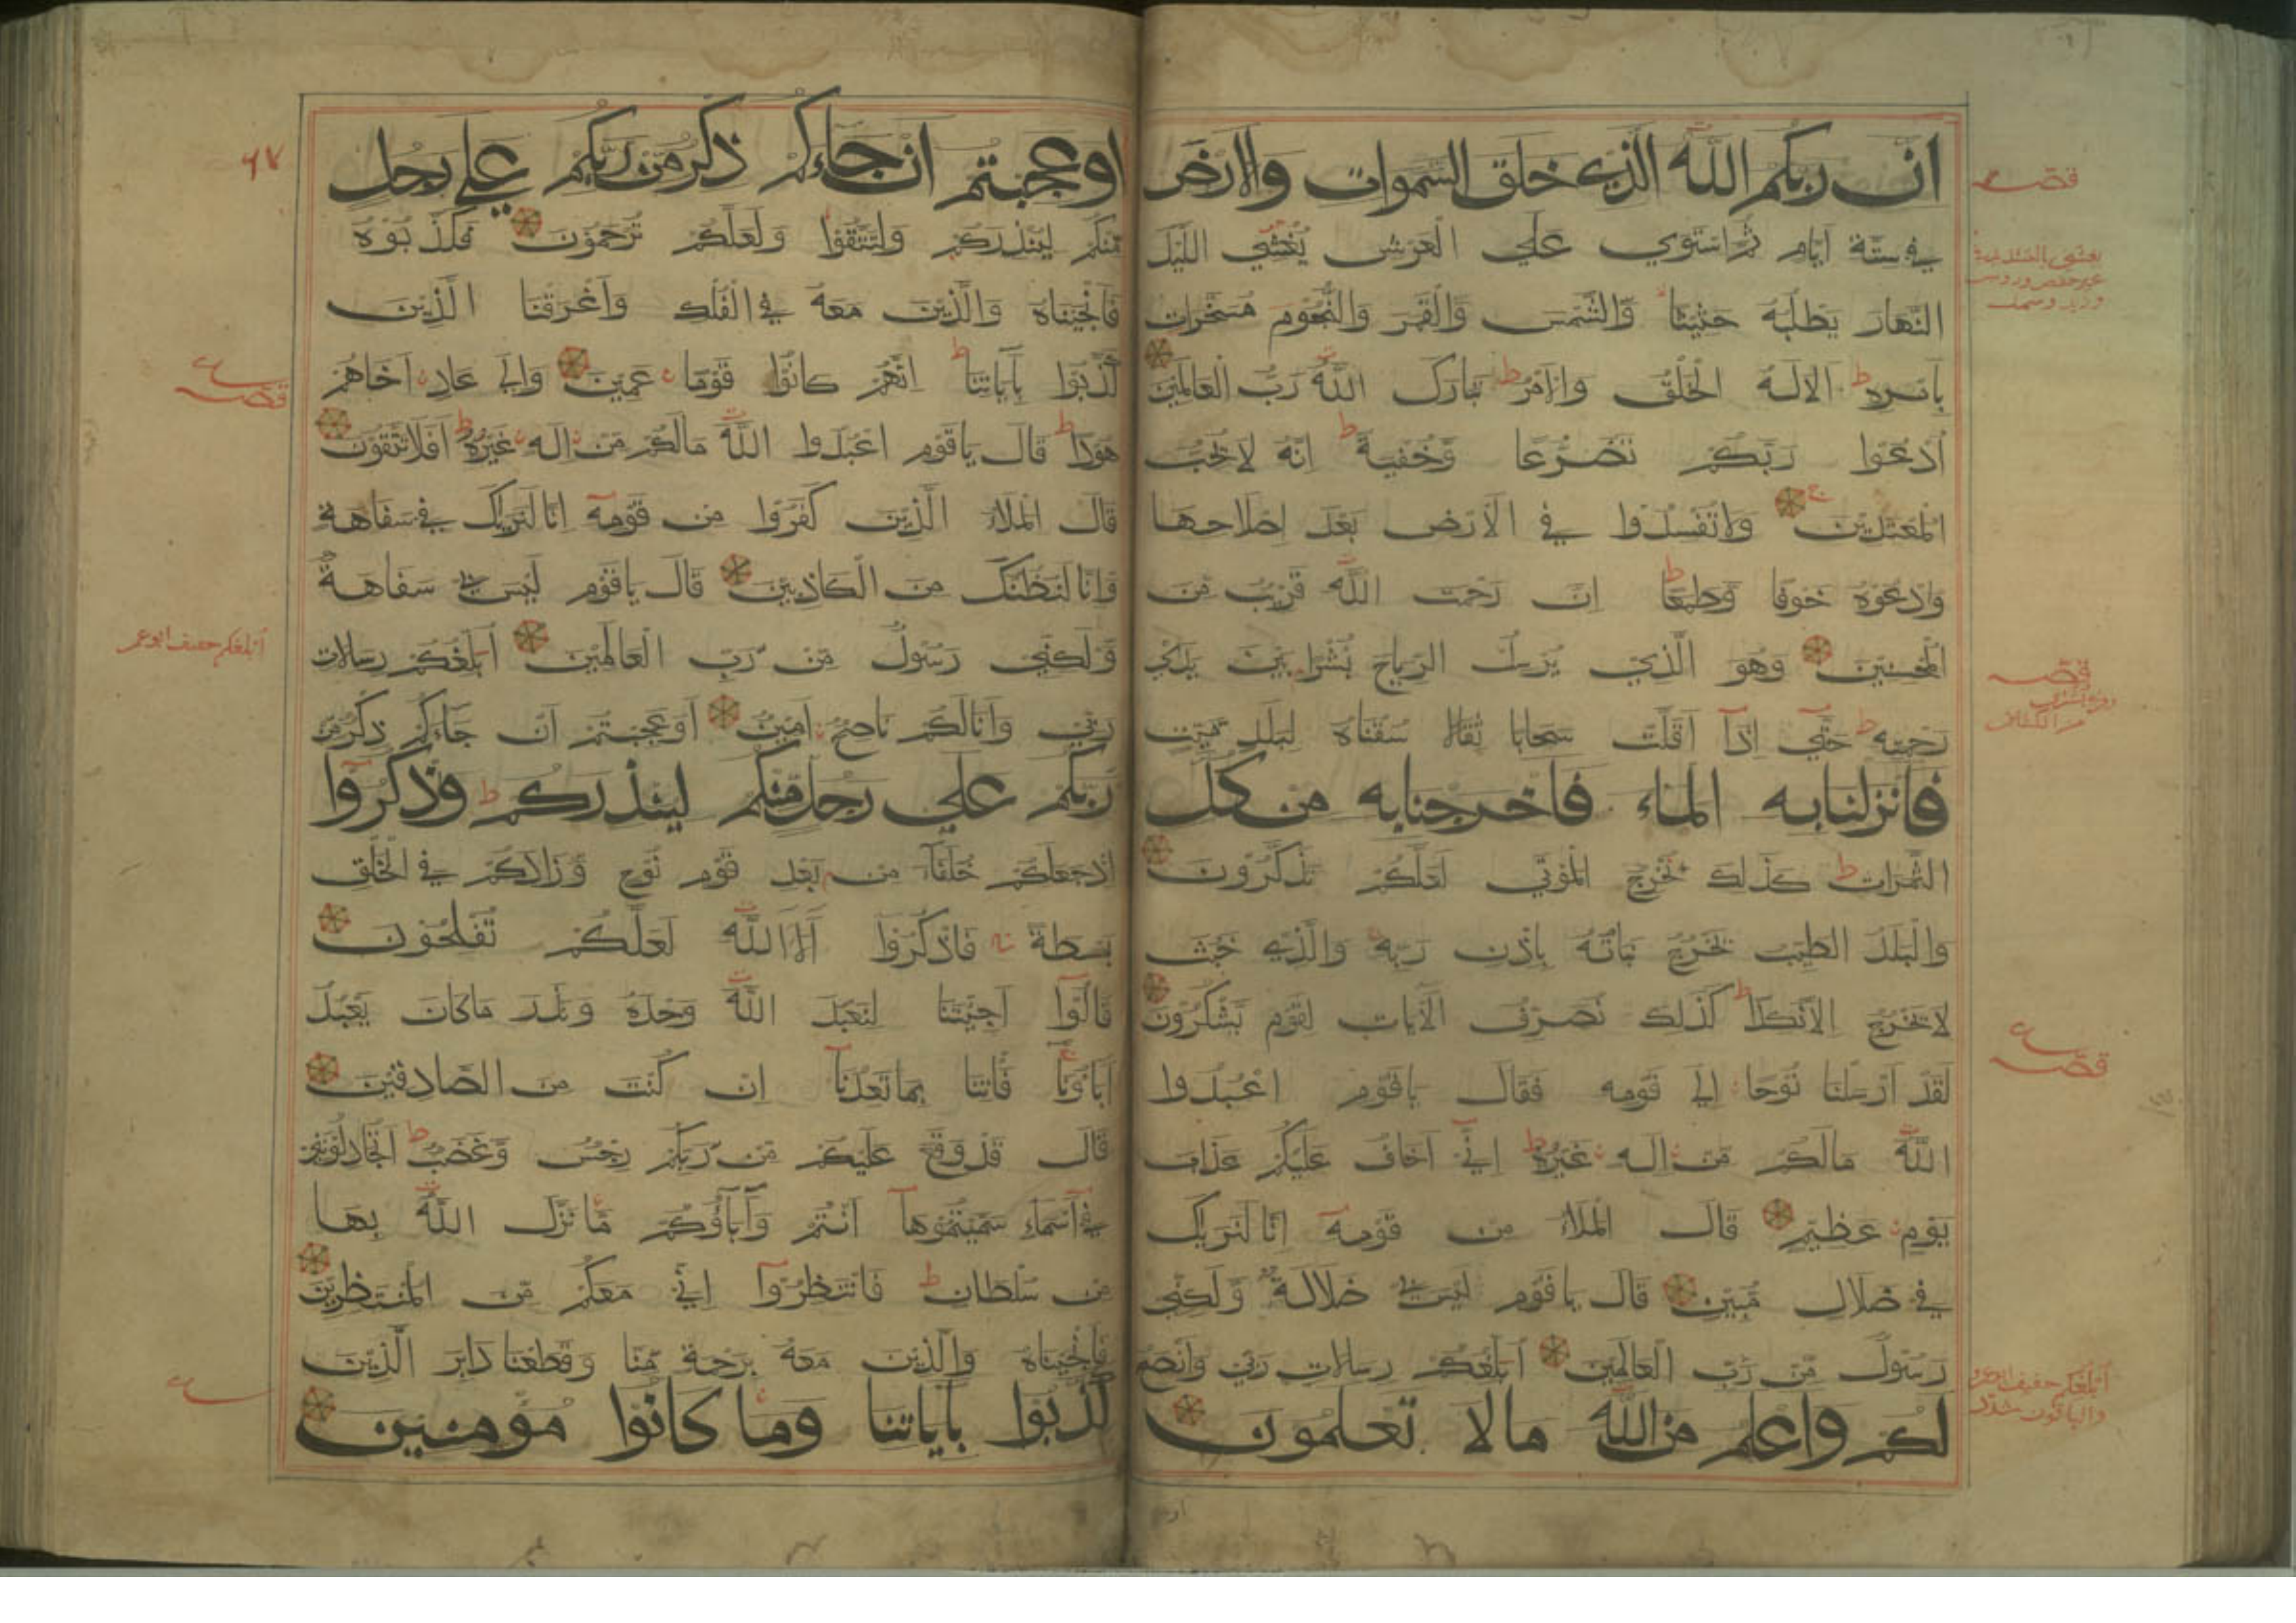 ان ربكم الله الذي خلق السموات والارض
في ستة ايام ثم استوي علي العرش يغشي الليل
النهار يطلبه حثيثا والشمس والقمر والنجوم مسخرات
بامره ط الا له الخلق والامر ط تبارك الله رب العالمين
ادعوا ربكم تضرعا وخفية ط انه لا يحب
المعتدين ولا تفسدوا في الارض بعد اصلاحها
وادعوه خوفا وطمعا ط ان رحمت الله قريب من
المحسنين وهو الذي يرسل الرياح نشرا بين يدي
رحمته ط حتي اذا اقلت سحابا ثقالا سقناه لبلد ميت
فانزلنا به الماء فاخرجنا به من كل
الثمرات ط كذلك نخرج الموتي لعلكم تذكرون
والبلد الطيب يخرج نباته باذن ربه والذي خبث
لا يخرج الا نكدا ط كذلك نصرف الايات لقوم يشكرون
لقد ارسلنا نوحا الي قومه فقال ياقوم اعبدوا
الله مالكم من اله غيره ط اني اخاف عليكم عذاب
يوم عظيم قال الملا من قومه انا لنريك
في ضلال مبين قال ياقوم ليس بي ضلالة ولكني
رسول من رب العالمين ابلغكم رسالات ربي وانصح
لكم واعلم من الله مالا تعلمون
قصه
قصه
من الكشاف
ع
قصه
ابلغكم خفيف ابو عمرو
والباقون مشدد
اوعجبتم ان جاءكم ذكر من ربكم علي رجل
منكم لينذركم ولتتقوا ولعلكم ترحمون فكذبوه
فانجيناه والذين معه في الفلك واغرقنا الذين
كذبوا باياتنا ط انهم كانوا قوما عمين والي عاد اخاهم
هودا ط قال ياقوم اعبدوا الله مالكم من اله غيره ط افلا تتقون
قال الملا الذين كفروا من قومه انا لنريك في سفاهة
وانا لنظنك من الكاذبين قال ياقوم ليس بي سفاهة
ولكني رسول من رب العالمين ابلغكم رسالات
ربي وانا لكم ناصح امين اوعجبتم ان جاءكم ذكر من
ربكم علي رجل منكم لينذركم ط واذكروا
اذ جعلكم خلفاء من بعد قوم نوح وزادكم في الخلق
بسطة فاذكروا الاء الله لعلكم تفلحون
قالوا اجئتنا لنعبد الله وحده ونذر ماكان يعبد
اباؤنا فاتنا بما تعدنا ان كنت من الصادقين
قال قد وقع عليكم من ربكم رجس وغضب ط اتجادلونني
في اسماء سميتموها انتم واباؤكم ما نزل الله بها
من سلطان ط فانتظروا اني معكم من المنتظرين
فانجيناه والذين معه برحمة منا وقطعنا دابر الذين
كذبوا باياتنا وما كانوا مؤمنين
ع
قصه
ابلغكم خفيف ابو عمر
ع